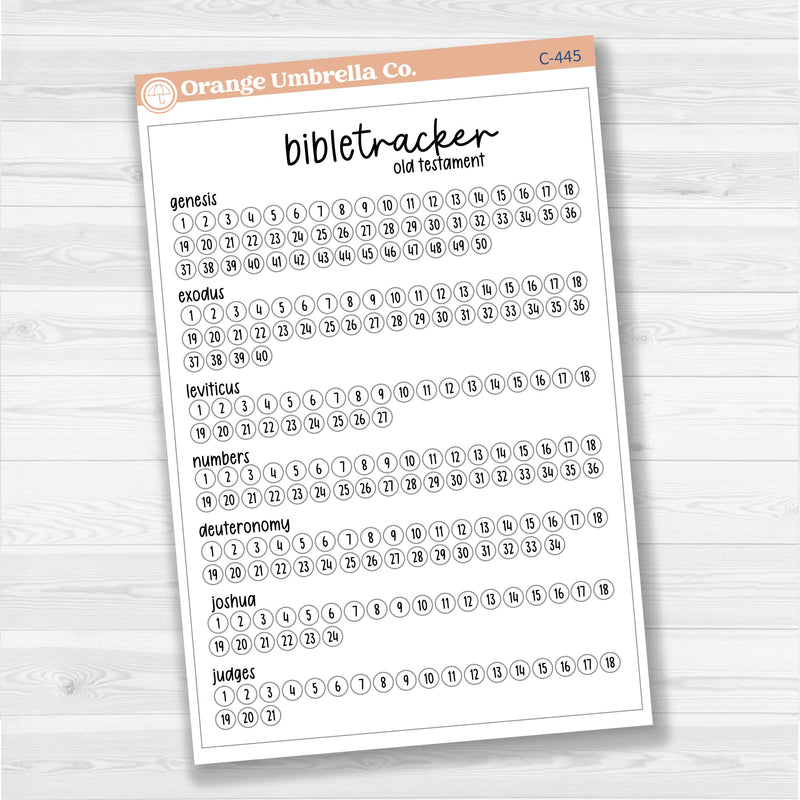 Orange Umbrella Co.
C-445
bibletracker
old testament
genesis
1 2 3 4 5 6 7 8 9 10 11 12 13 14 15 16 17 18
19 20 21 22 23 24 25 26 27 28 29 30 31 32 33 34 35 36
37 38 39 40 41 42 43 44 45 46 47 48 49 50
exodus
1 2 3 4 5 6 7 8 9 10 11 12 13 14 15 16 17 18
19 20 21 22 23 24 25 26 27 28 29 30 31 32 33 34 35 36
37 38 39 40
leviticus
1 2 3 4 5 6 7 8 9 10 11 12 13 14 15 16 17 18
19 20 21 22 23 24 25 26 27
numbers
1 2 3 4 5 6 7 8 9 10 11 12 13 14 15 16 17 18
19 20 21 22 23 24 25 26 27 28 29 30 31 32 33 34 35 36
deuteronomy
1 2 3 4 5 6 7 8 9 10 11 12 13 14 15 16 17 18
19 20 21 22 23 24 25 26 27 28 29 30 31 32 33 34
joshua
1 2 3 4 5 6 7 8 9 10 11 12 13 14 15 16 17 18
19 20 21 22 23 24
judges
1 2 3 4 5 6 7 8 9 10 11 12 13 14 15 16 17 18
19 20 21